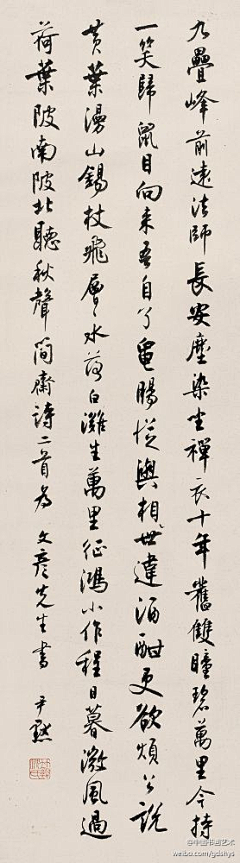 九疊峰前遠法師長安塵染坐禪衣十年舊雙瞳碧萬里今持
一笑歸鼠目向来吾自了龜腸從與相世違酒酣更欲煩公說
黄葉漫山錫杖飛層水落白灘生萬里征鴻小作程日暮微風過
荷葉陂南陂北聽秋聲簡齋詩二首為
文彦先生書 尹默
@中国书画艺术
weibo.com/gdshys